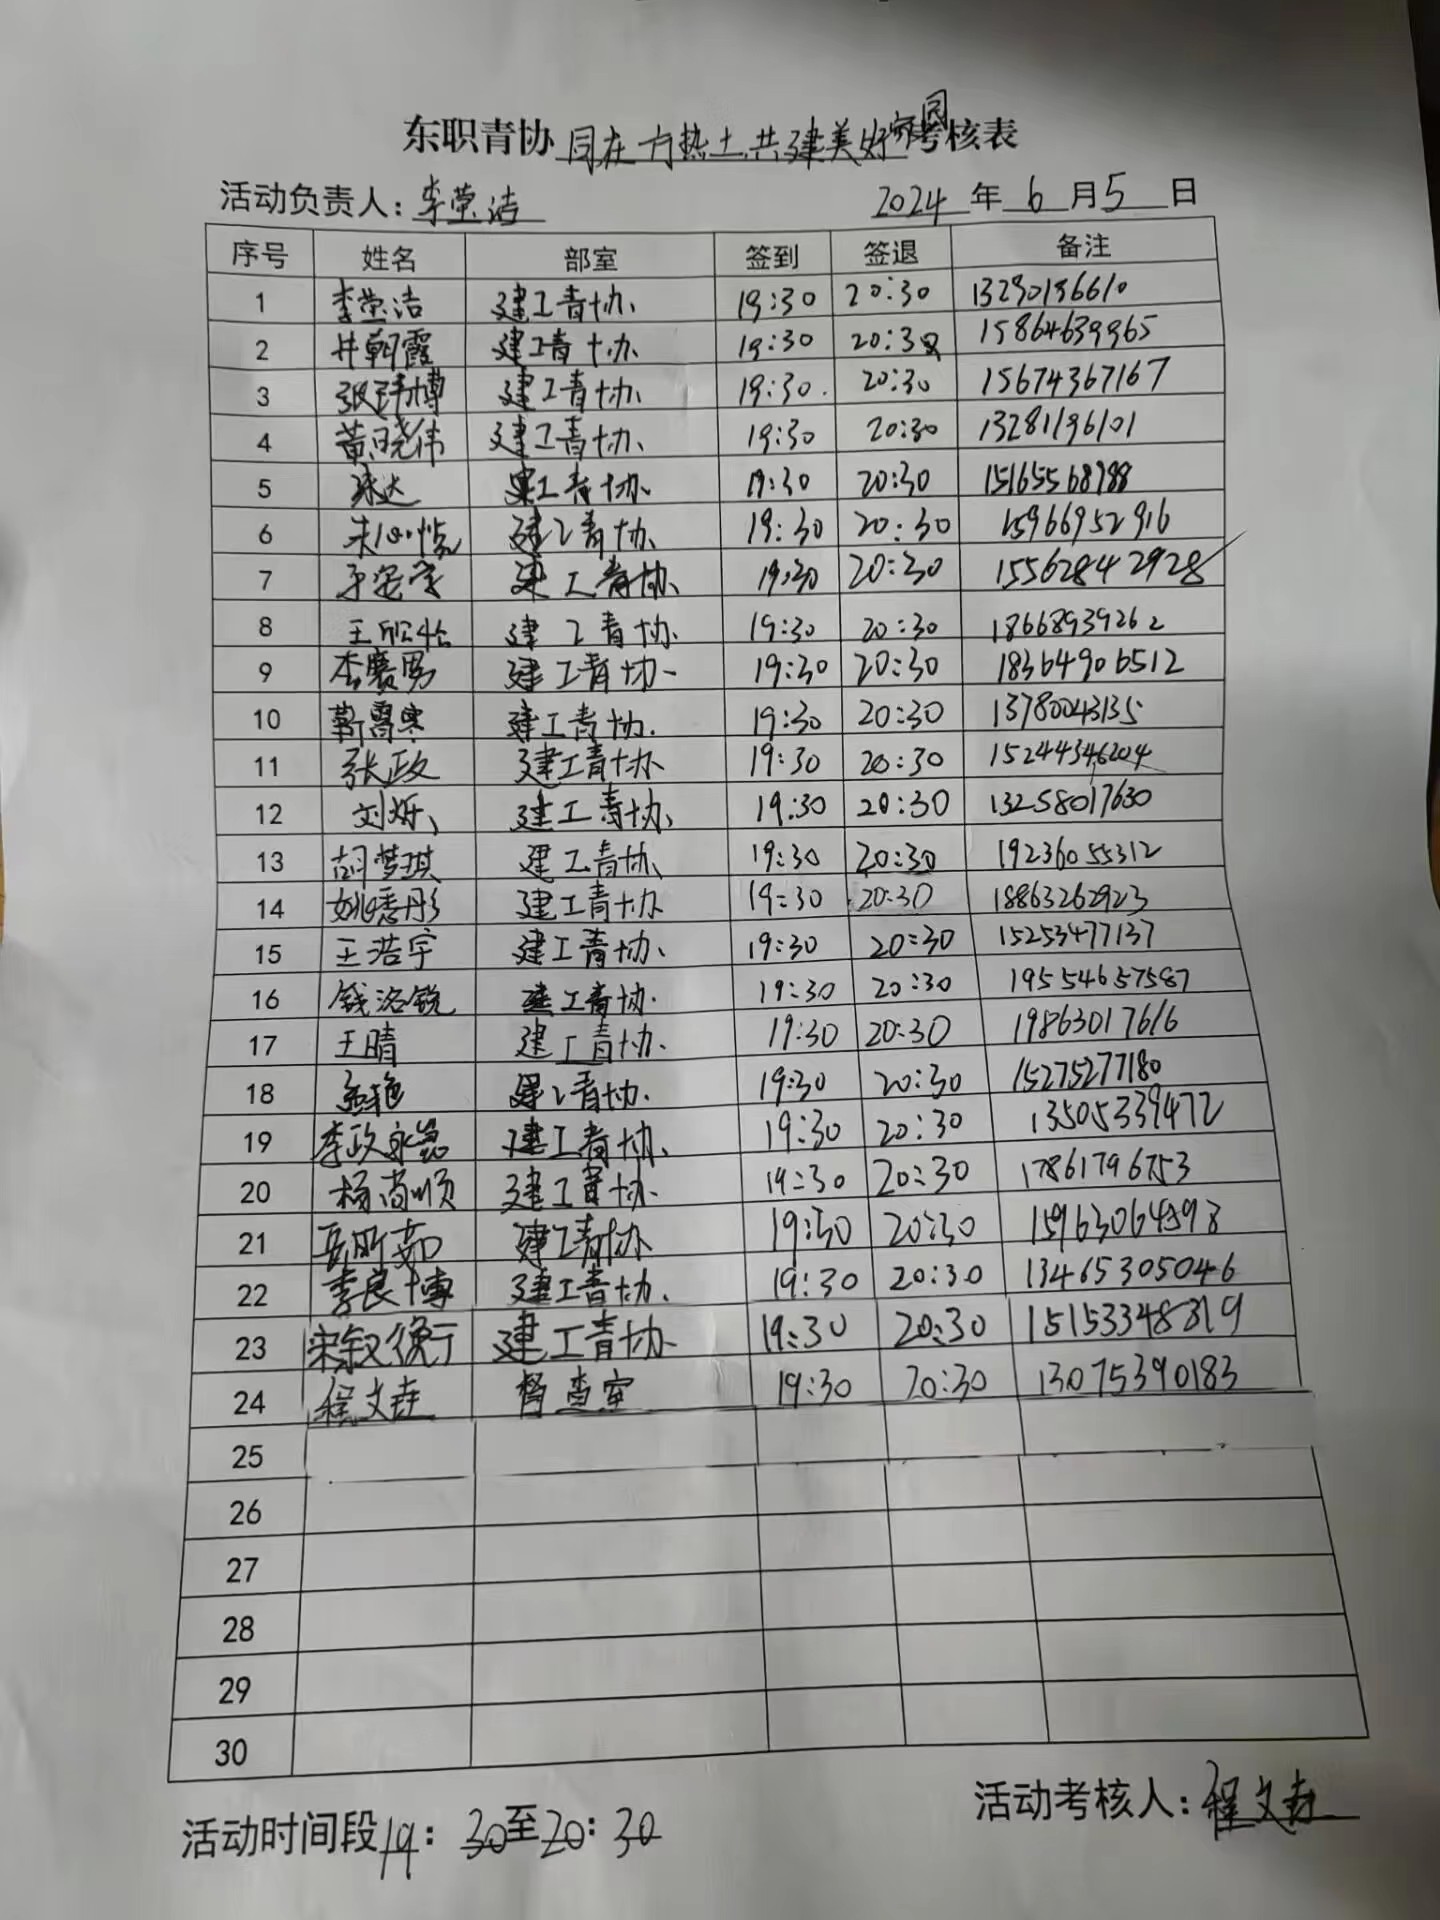 东职青协 同在方热土共建美好家园 考核表
活动负责人: 李荣洁 2024 年 6 月 5 日
序号 姓名 部室 签到 签退 备注
1 李荣洁 建工青协 19:30 20:30 13290196610
2 井朝霞 建工青协 19:30 20:30 15864639965
3 张玮博 建工青协 19:30 20:30 15674367167
4 黄晓伟 建工青协 19:30 20:30 13281196101
5 建工青协 19:30 20:30 15165568988
6 朱心悦 建工青协 19:30 20:30 15966952916
7 建工青协 19:30 20:30 15562842928
8 王欣怡 建工青协 19:30 20:30 18668939262
9 李赛男 建工青协 19:30 20:30 18364906512
10 建工青协 19:30 20:30 13780043135
11 张政 建工青协 19:30 20:30 15244346204
12 刘烁 建工青协 19:30 20:30 13258017630
13 胡梦琪 建工青协 19:30 20:30 19236055312
14 姚秀彤 建工青协 19:30 20:30 18863262923
15 王浩宇 建工青协 19:30 20:30 15253477137
16 钱洛锐 建工青协 19:30 20:30 19554657587
17 王晴 建工青协 19:30 20:30 19863017616
18 孟艳 建工青协 19:30 20:30 15275277180
19 建工青协 19:30 20:30 13505339472
20 杨尚顺 建工青协 19:30 20:30 17861796753
21 建工青协 19:30 20:30
22 李良博 建工青协 19:30 20:30 13465305046
23 建工青协 19:30 20:30 15153348319
24 程文垚 督查室 19:30 20:30 13075390183
25
26
27
28
29
30
活动考核人: 程文垚
活动时间段 19:30至20:30